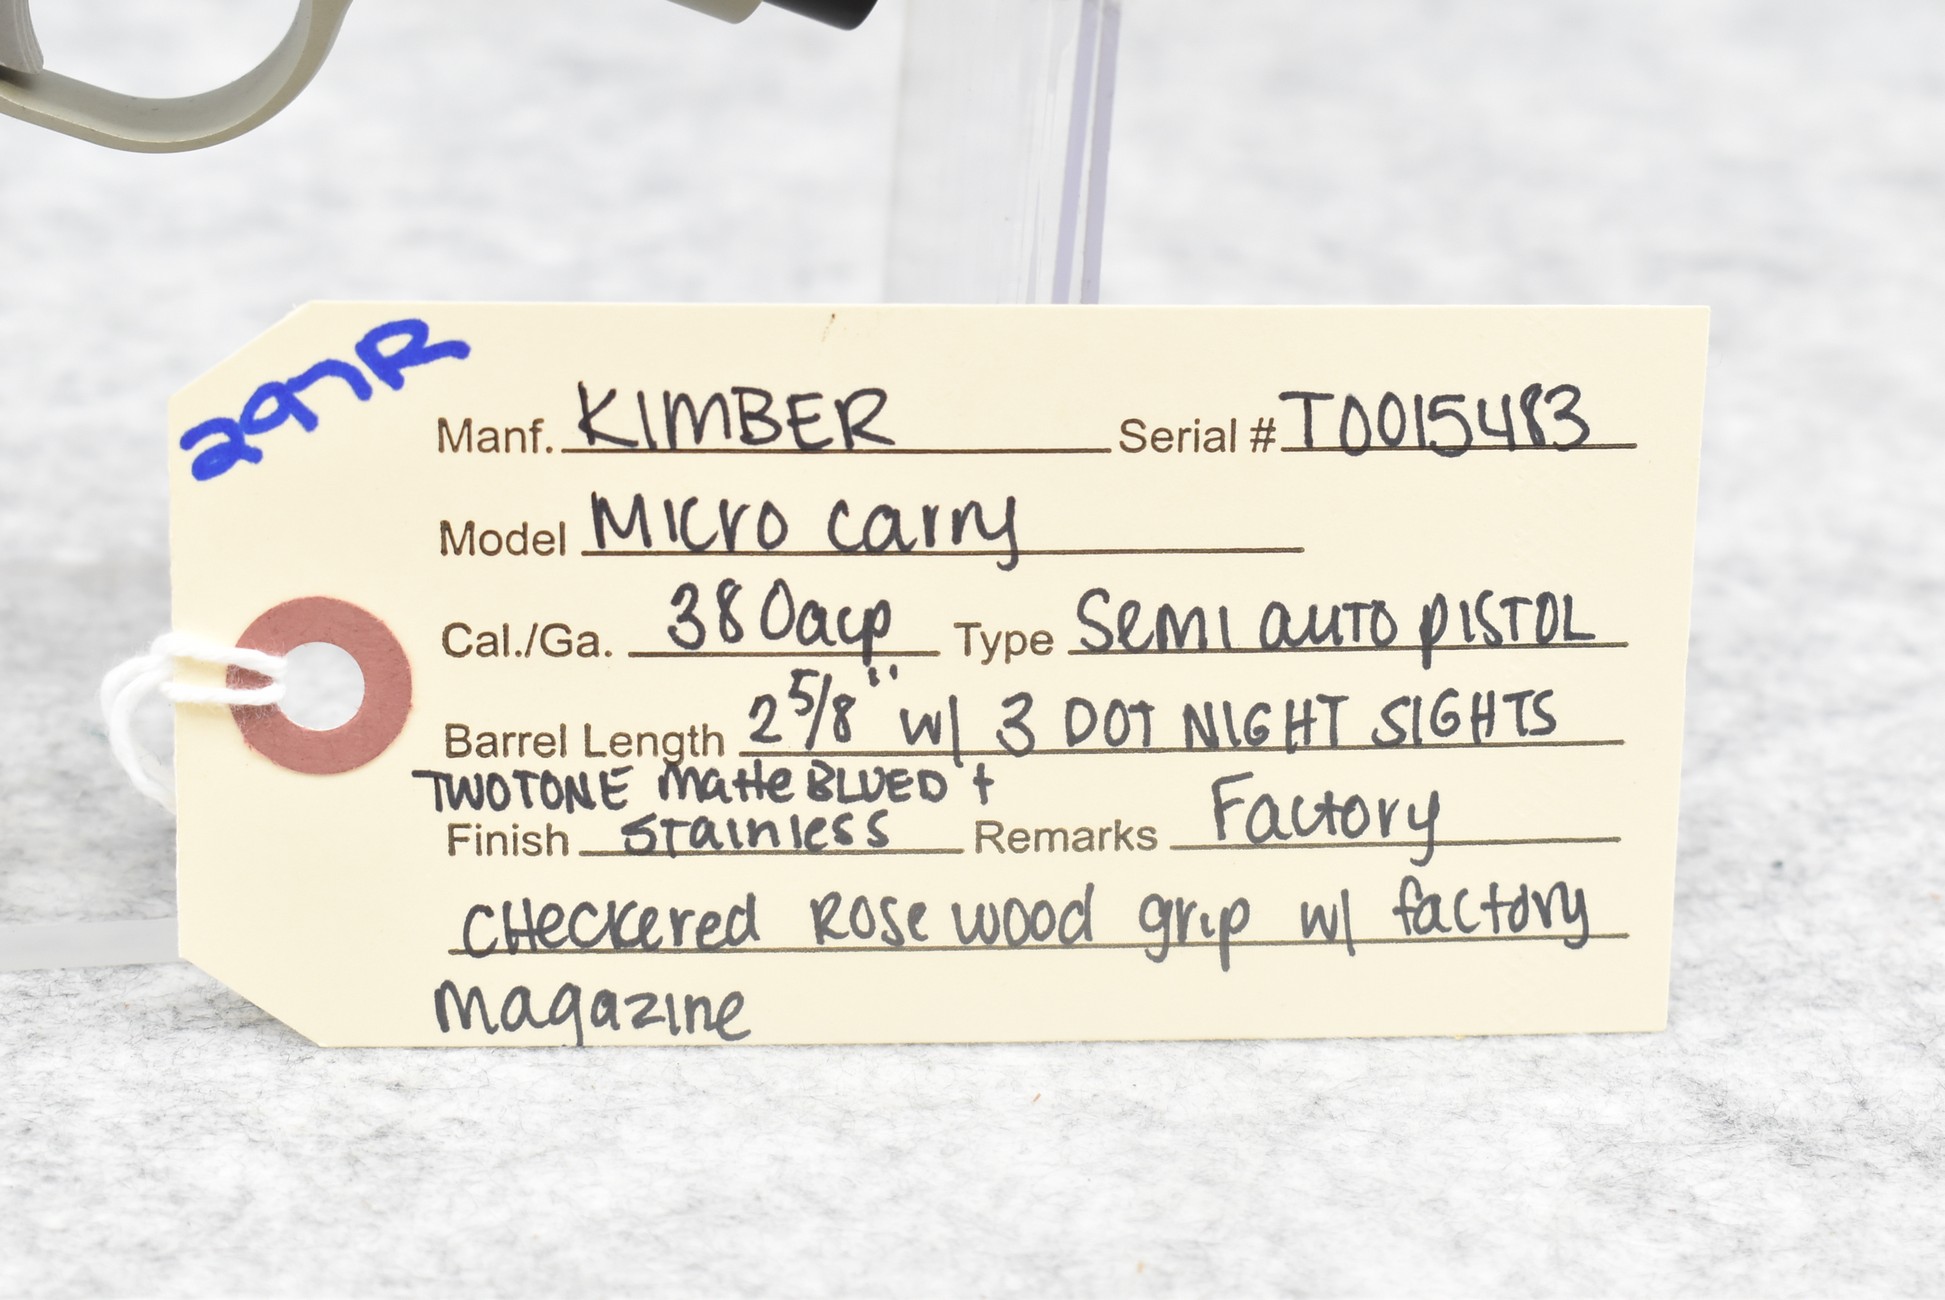 297R
Manf. KIMBER Serial # T0015483
Model Micro carry
Cal./Ga. 380acp Type Semi auto pistol
Barrel Length 2 5/8" w/ 3 DOT NIGHT SIGHTS
TWOTONE Matte BLUED +
Finish Stainless Remarks Factory
CHeckered Rose wood grip w/ factory
Magazine